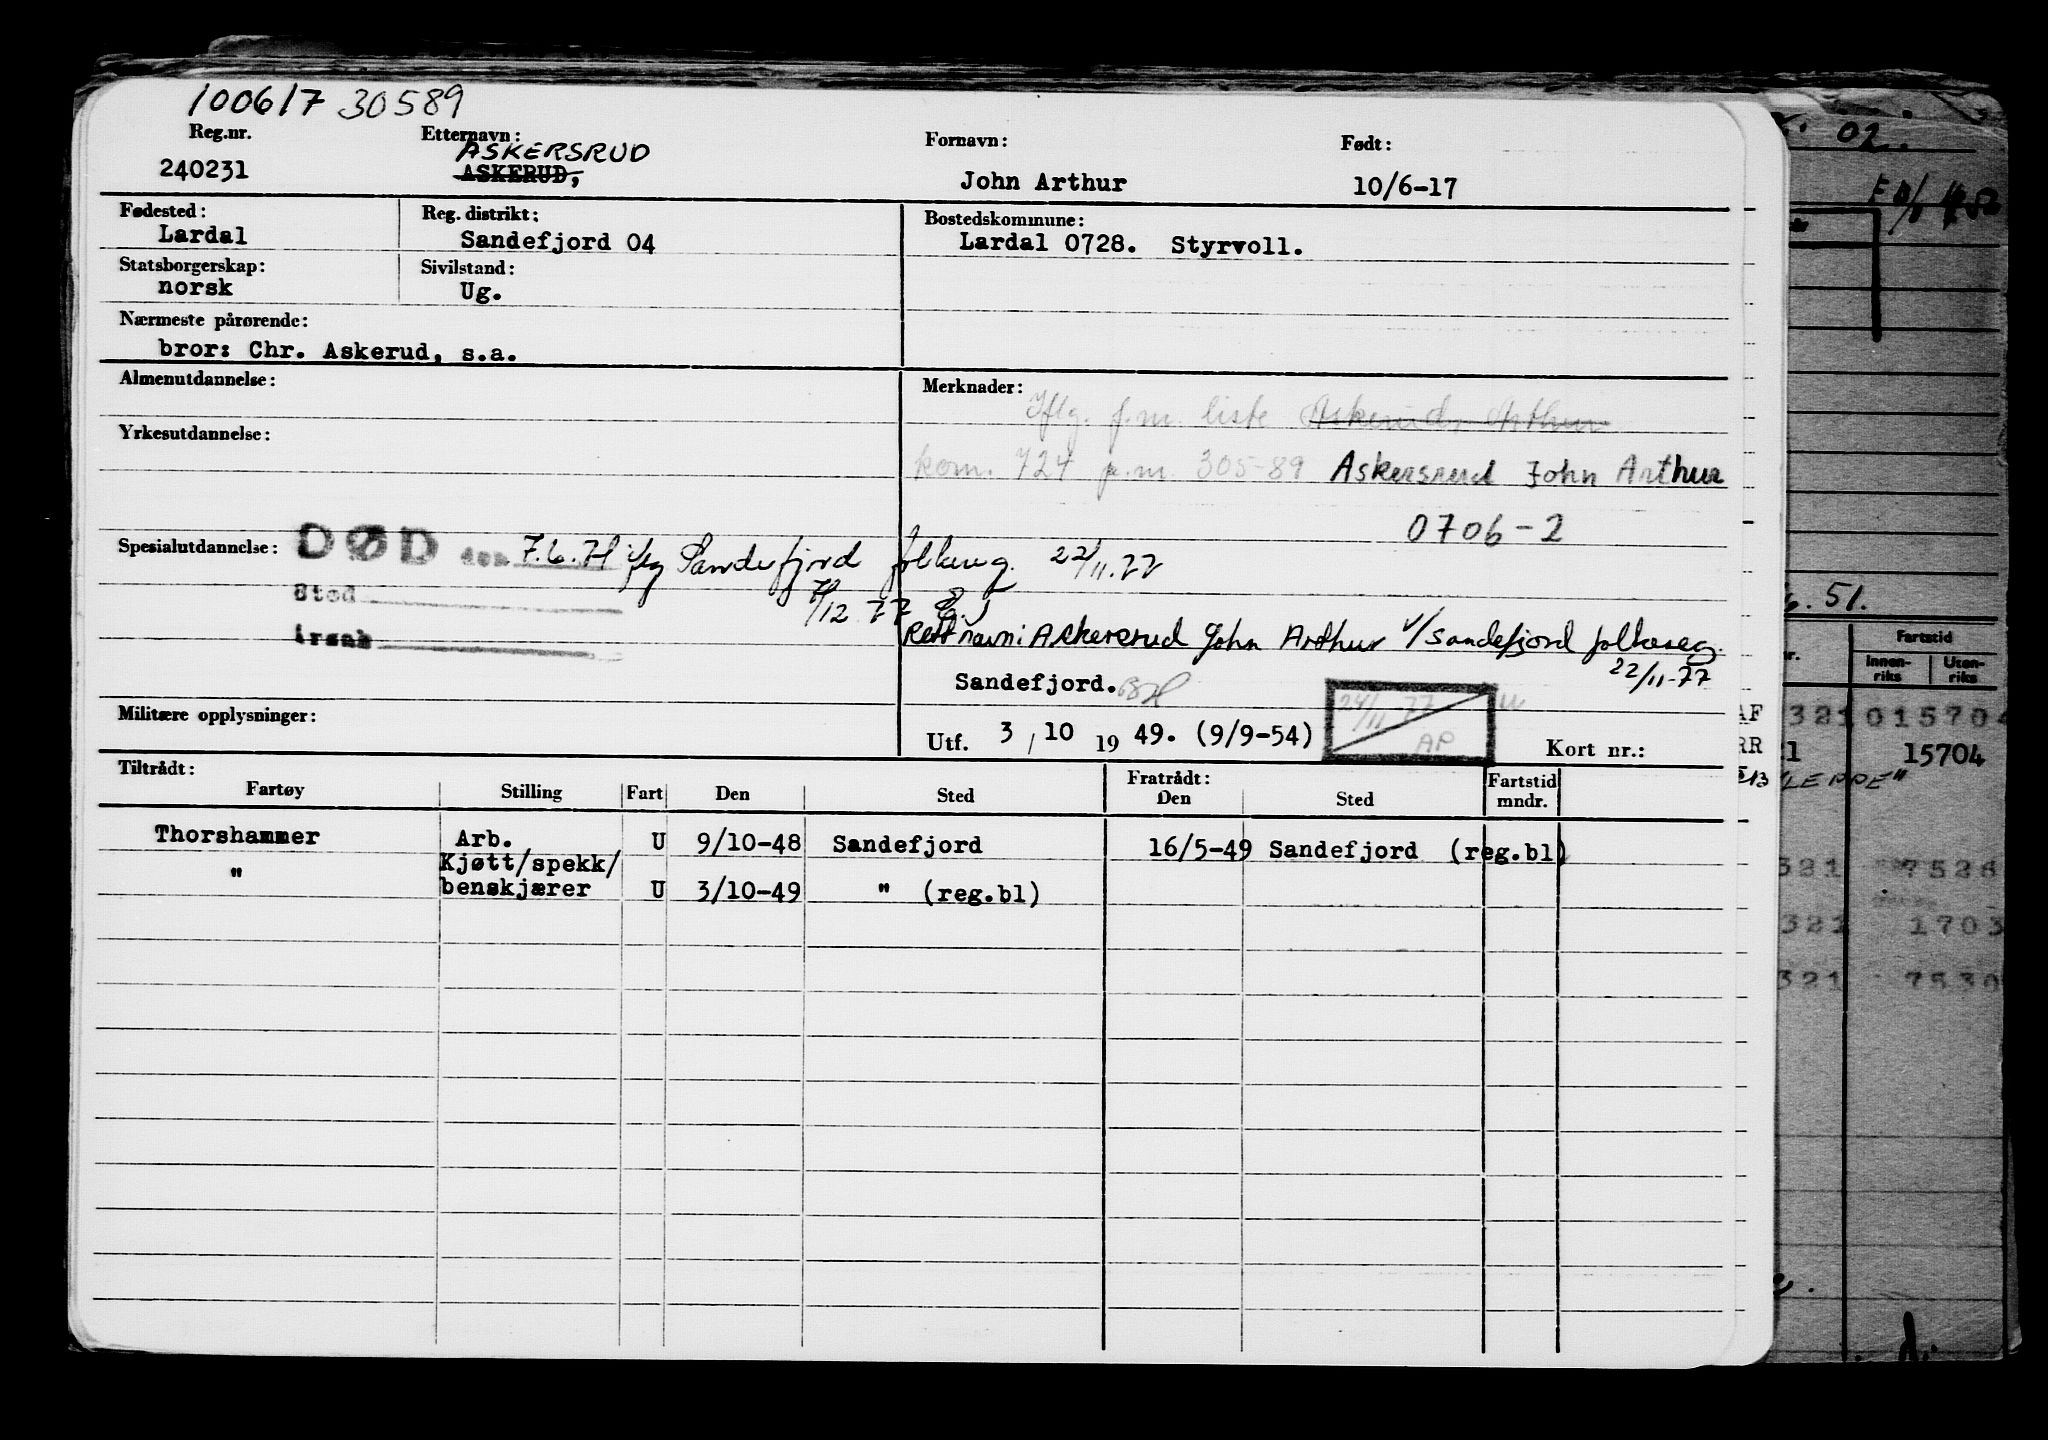 100617 30589
Reg.nr. Etternavn: Fornavn: Født:
ASKERSRUD
240231 ASKERUD, John Arthur 10/6-17
Fødested: Reg. distrikt: Bostedskommune:
Lardal Sandefjord 04 Lardal 0728. Styrvoll.
Statsborgerskap: Sivilstand:
norsk Ug.
Nærmeste pårørende:
bror: Chr. Askerud, s.a.
Almenutdannelse: Merknader:
Iflg. f.m. liste Askerud, Arthur
Yrkesutdannelse:
kom. 724 p.m. 305-89 Askersrud John Arthur
0706-2
Spesialutdannelse: DØD den 7.6.71 iflg Sandefjord folkereg. 22/11.77
Sted 7/12 77
Årsak Rett navn: Askersrud John Arthur v/Sandefjord folkereg.
22/11-77
Sandefjord.
Militære opplysninger:
24/11-77 AP
Utf. 3/10 1949. (9/9-54) Kort nr.:
Tiltrådt: Fratrådt:
Fartøy Stilling Fart Den Sted Den Sted Fartstid mndr.
Thorshammer Arb. U 9/10-48 Sandefjord 16/5-49 Sandefjord (reg.bl)
" Kjøtt/spekk/
benskjærer U 3/10-49 " (reg.bl)
02.
51.
Fartstid
Innen-riks Uten-riks
321 015704
15704
321 7526
321 1703
321 7530